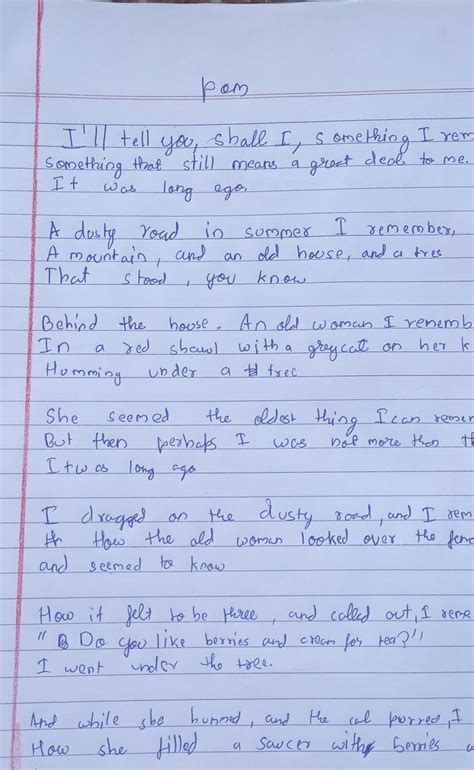 pom
I'll tell you, shall I, something I rem
something that still means a great deal to me.
It was long ago.
A dusty road in summer I remember,
A mountain, and an old house, and a tree
That stood, you know
Behind the house. An old woman I rememb
In a red shawl with a grey cat on her k
Humming under a tree
She seemed the oldest thing I can remem
But then perhaps I was not more than th
It was long ago
I dragged on the dusty road, and I rem
How the old woman looked over the fenc
and seemed to know
How it felt to be three, and called out, I reme
" Do you like berries and cream for tea?"
I went under the tree.
And while she hummed, and the cat purred, I
How she filled a saucer with berries a